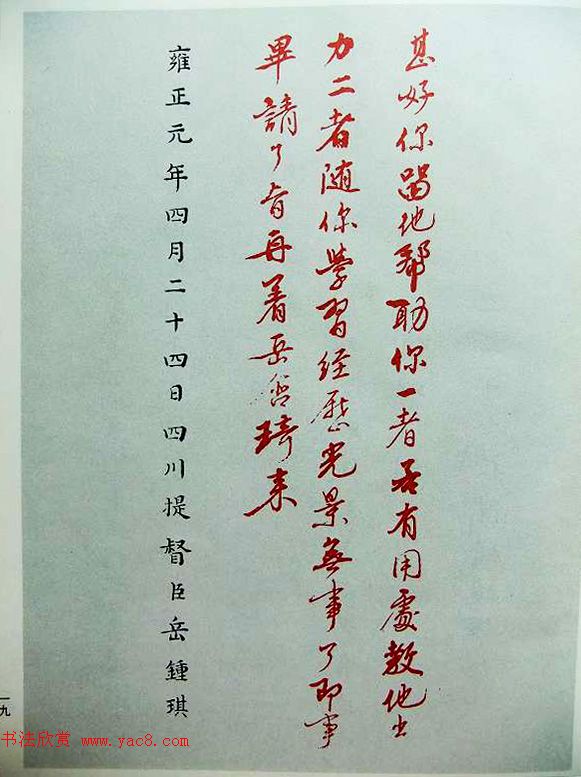 甚好你留他帮助你一者若有用處教他出
力二者随你學習经歷光景無事了即事
畢請了旨再着岳含琦来
雍正元年四月二十四日四川提督臣岳鍾琪
一九
书法欣赏 www.yac8.com